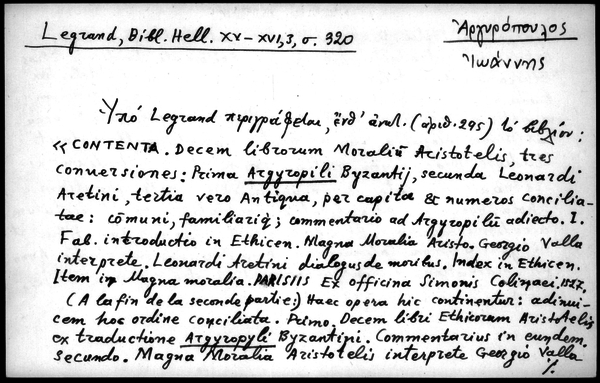 Legrand, Bibl. Hell. XV–XVI, 3, σ. 320
Ἀργυρόπουλος
Ἰωάννης
Ὑπό Legrand περιγράφεται, ἔνθ' ἀνωτ. (ἀριθ. 295) τό βιβλίον:
«CONTENTA. Decem librorum Moraliū Aristotelis, tres
conuersiones: Prima Argyropili Byzantij, secunda Leonardi
Aretini, tertia vero Antiqua, per capita & numeros concilia-
tae: cōmuni, familiariq; commentario ad Argyropilū adiecto. I.
Fab. introductio in Ethicen. Magna Moralia Aristo. Georgio Valla
interprete. Leonardi Aretini dialogus de moribus. Index in Ethicen.
Item in Magna moralia. PARISIIS Ex officina Simonis Colinaei.
(A la fin de la seconde partie:) Haec opera hic continentur: adinui-
cem hoc ordine conciliata. Primo, Decem libri Ethicorum Aristotelis
ex traductione Argyropyli Byzantini. Commentarius in eundem.
secundo. Magna Moralia Aristotelis interprete Georgio Valla
./.